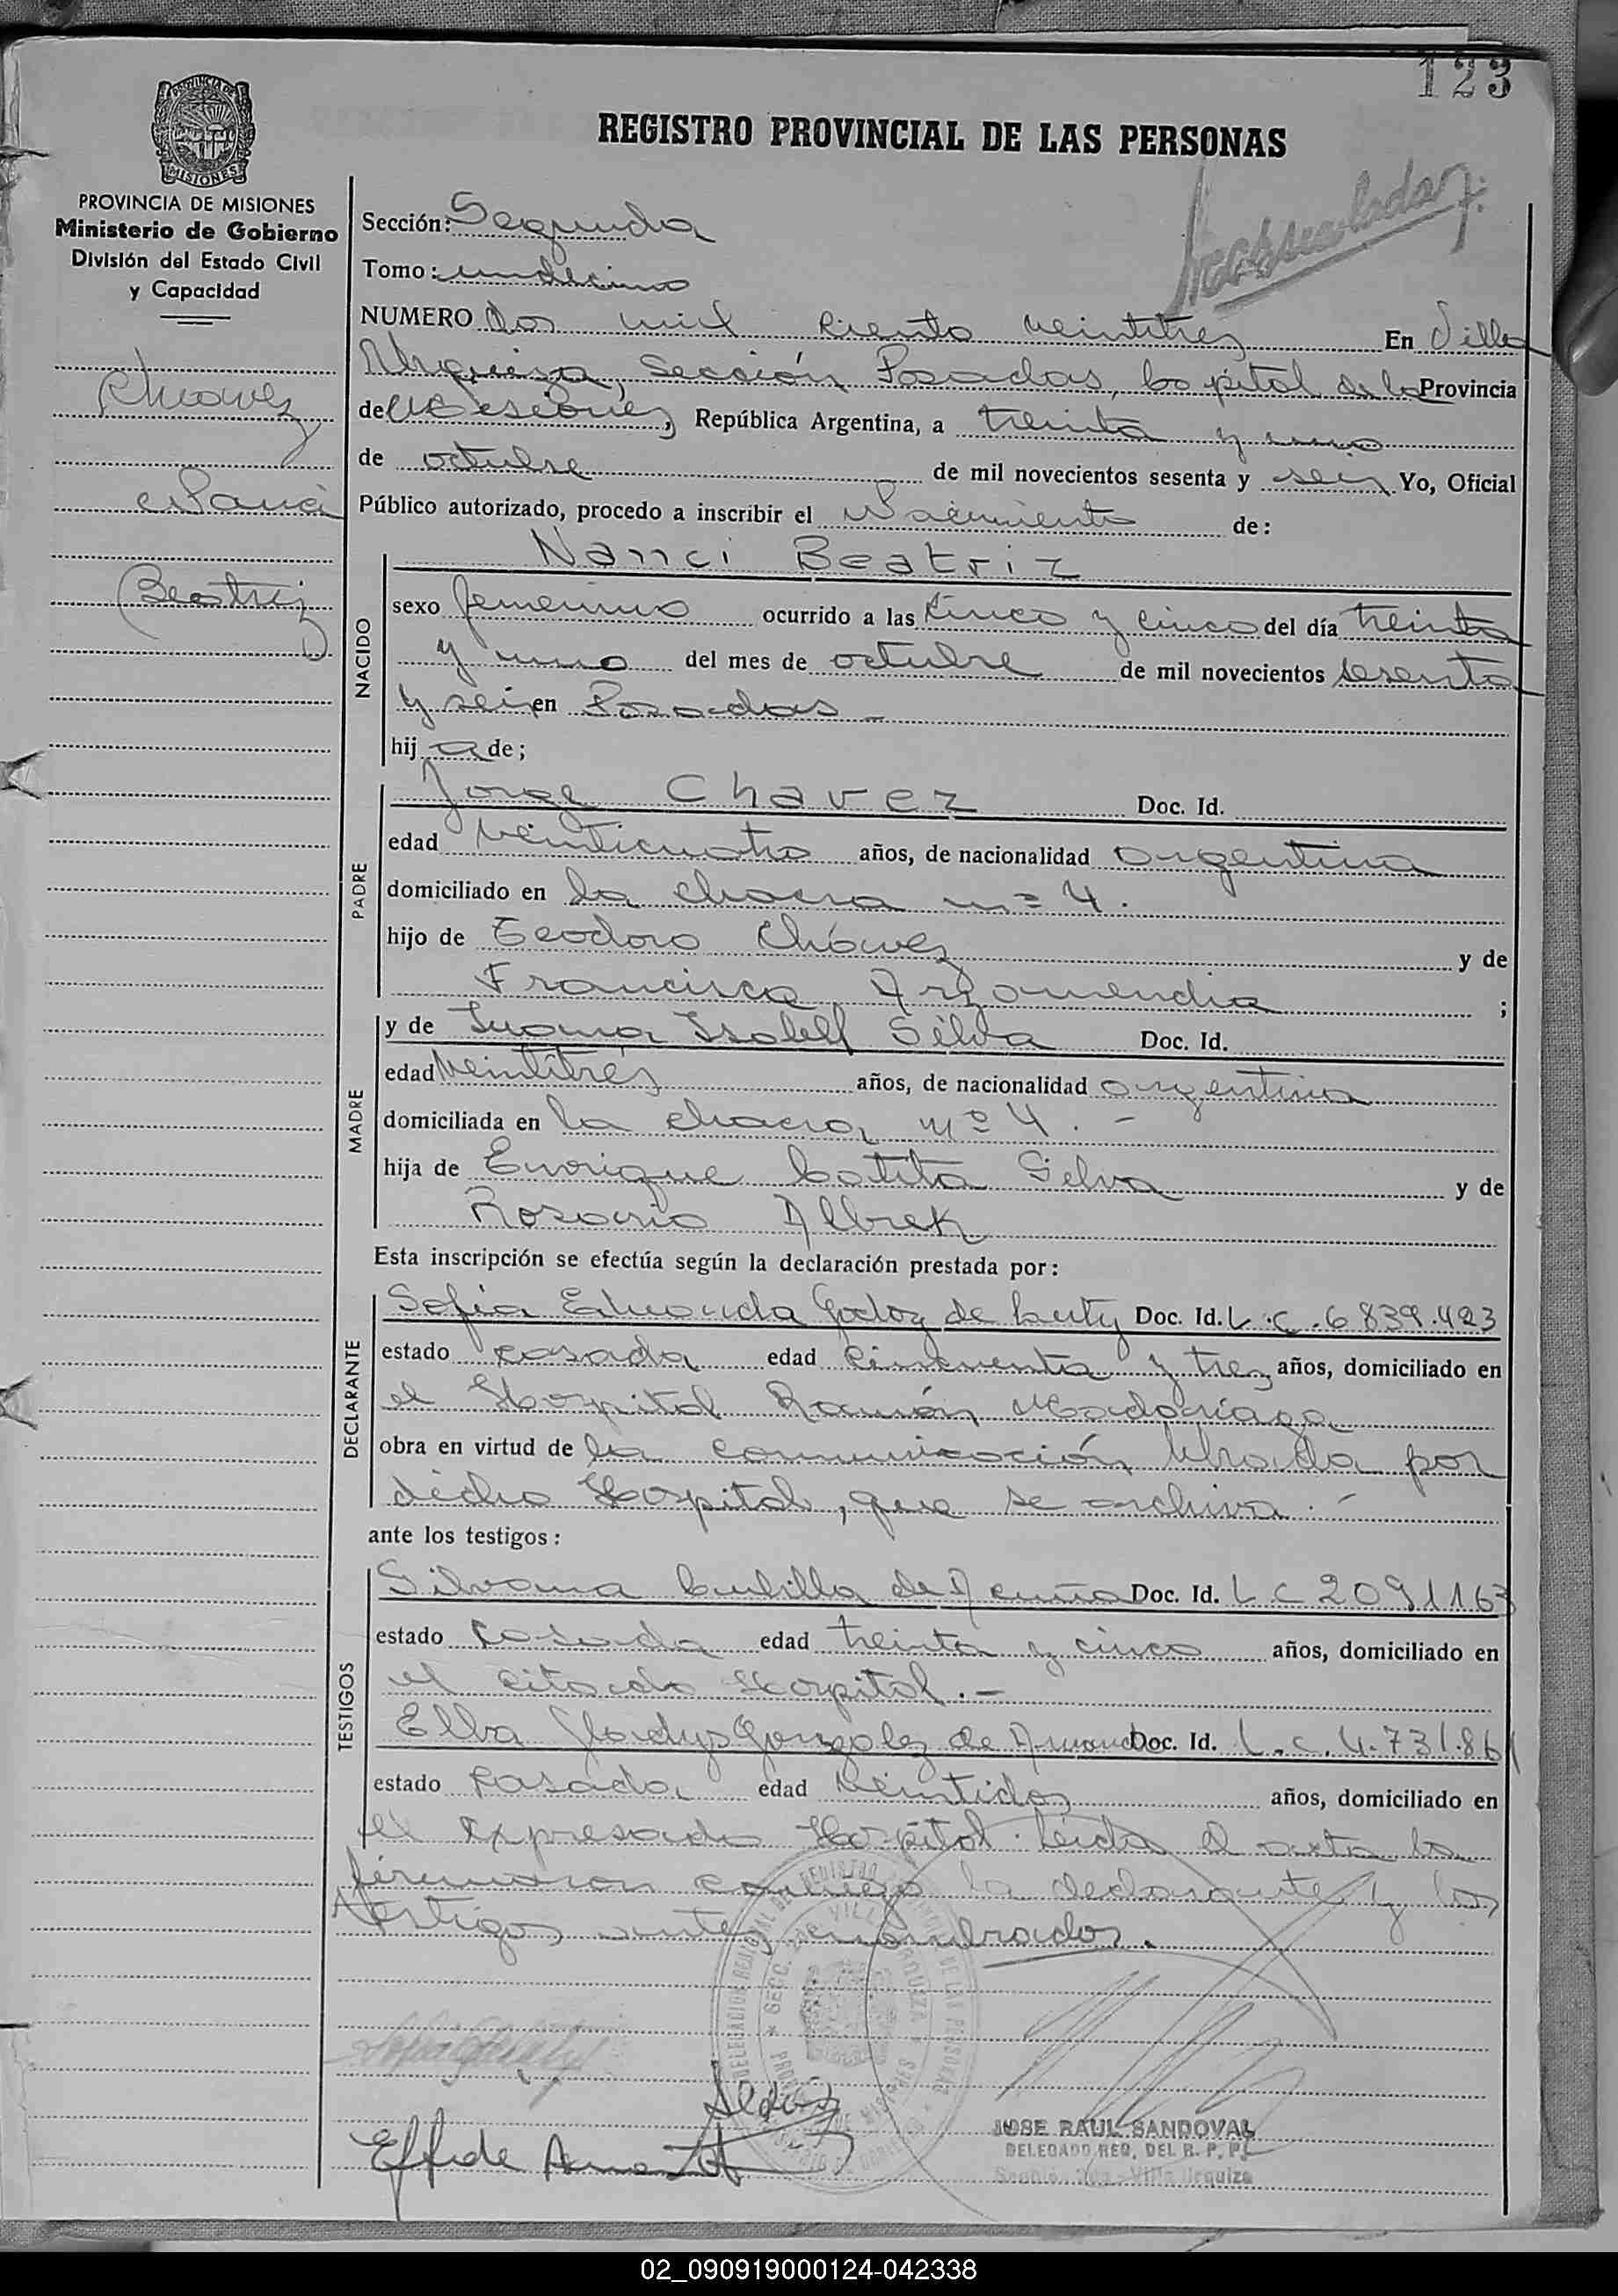 123
REGISTRO PROVINCIAL DE LAS PERSONAS
PROVINCIA DE MISIONES
Ministerio de Gobierno
División del Estado Civil
y Capacidad
Chavez
Nanci
Beatriz
Sección: Segunda
Tomo: undecimo
NUMERO Dos mil ciento veintitres En Villa
Urquiza, Sección Posadas, Capital de la Provincia
de Misiones, República Argentina, a treinta y uno
de octubre de mil novecientos sesenta y seis Yo, Oficial
Público autorizado, procedo a inscribir el Nacimiento de:
NACIDO
Nanci Beatriz
sexo femenino ocurrido a las cinco y cinco del día treinta
y uno del mes de octubre de mil novecientos sesenta
y seis en Posadas
hij a de;
PADRE
Jorge Chavez Doc. Id.
edad veinticuatro años, de nacionalidad argentina
domiciliado en la chacra nº 4.
hijo de Teodoro Chávez y de
Francisca Arzamendia ;
MADRE
y de Juana Isabell Silva Doc. Id.
edad veintitrés años, de nacionalidad argentina
domiciliada en la chacra nº 4. -
hija de Enrique Catita Silva y de
Rosario Albrek
Esta inscripción se efectúa según la declaración prestada por:
DECLARANTE
Sofia Eduarda Godoy de Doc. Id. L.C. 6839.423
estado casada edad cincuenta y tres años, domiciliado en
el Hospital Ramón Madariaga
obra en virtud de la comunicación librada por
dicho Hospital, que se archiva. -
ante los testigos:
TESTIGOS
Silvana Cubilla de Acuña Doc. Id. L C 2091163
estado casada edad treinta y cinco años, domiciliado en
el citado Hospital. -
Elba Gladys Gonzalez de Doc. Id. L.C. 4.731.861
estado casada edad veintidos años, domiciliado en
el expresado Hospital. Leida el acta la
firmaron conmigo la declarante y los
testigos antes nombrados.
JOSE RAUL SANDOVAL
DELEGADO REG. DEL R. P. P.
Villa Urquiza
02_090919000124-042338